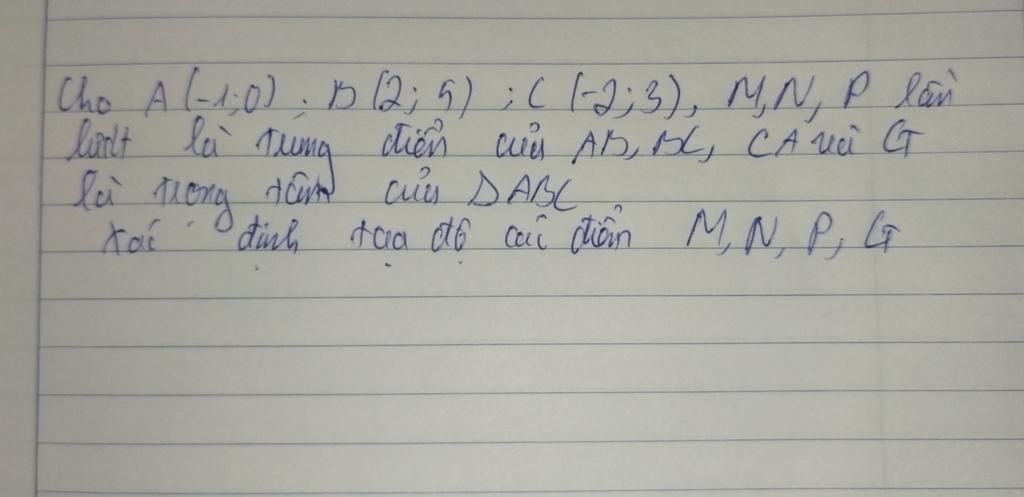 Cho A(-1;0); B(2;5); C(-2;3), M,N,P lần
lượt là trung điểm của AB, BC, CA và G
là trọng tâm của ΔABC
xác định tọa độ các điểm M, N, P, G